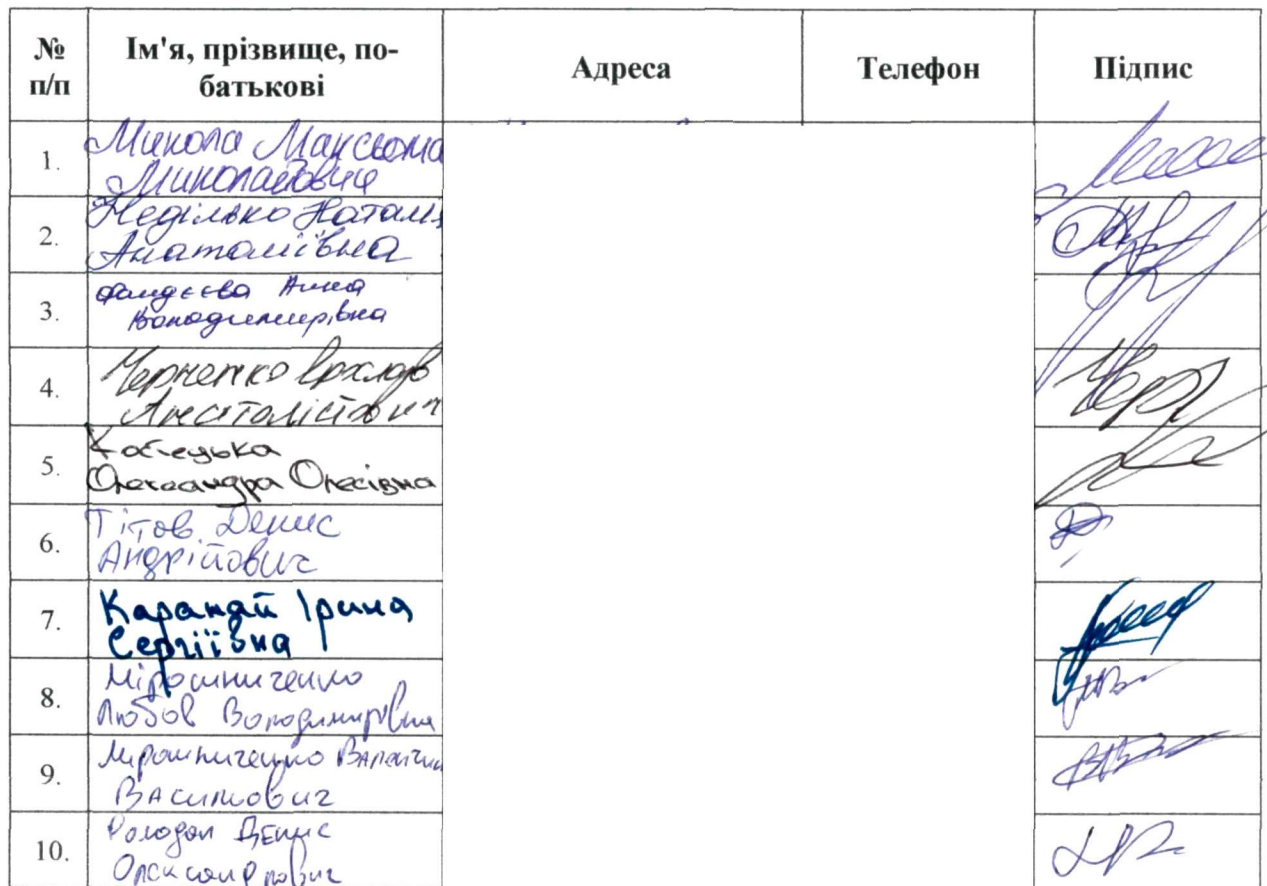 № п/п
Ім'я, прізвище, по-батькові
Адреса
Телефон
Підпис
1.
Микола Максюта
Миколайович
2.
Неділько Наталія
Анатоліївна
3.
Фандєєва Анна
Володимирівна
4.
Черненко
Анатолійович
5.
Олександра Олесівна
6.
Тітов Денис
Андрійович
7.
Каранай Ірина
Сергіївна
8.
Мірошниченко
Любов Володимирівна
9.
Мірошниченко
Васильович
10.
Денис
Олександрович